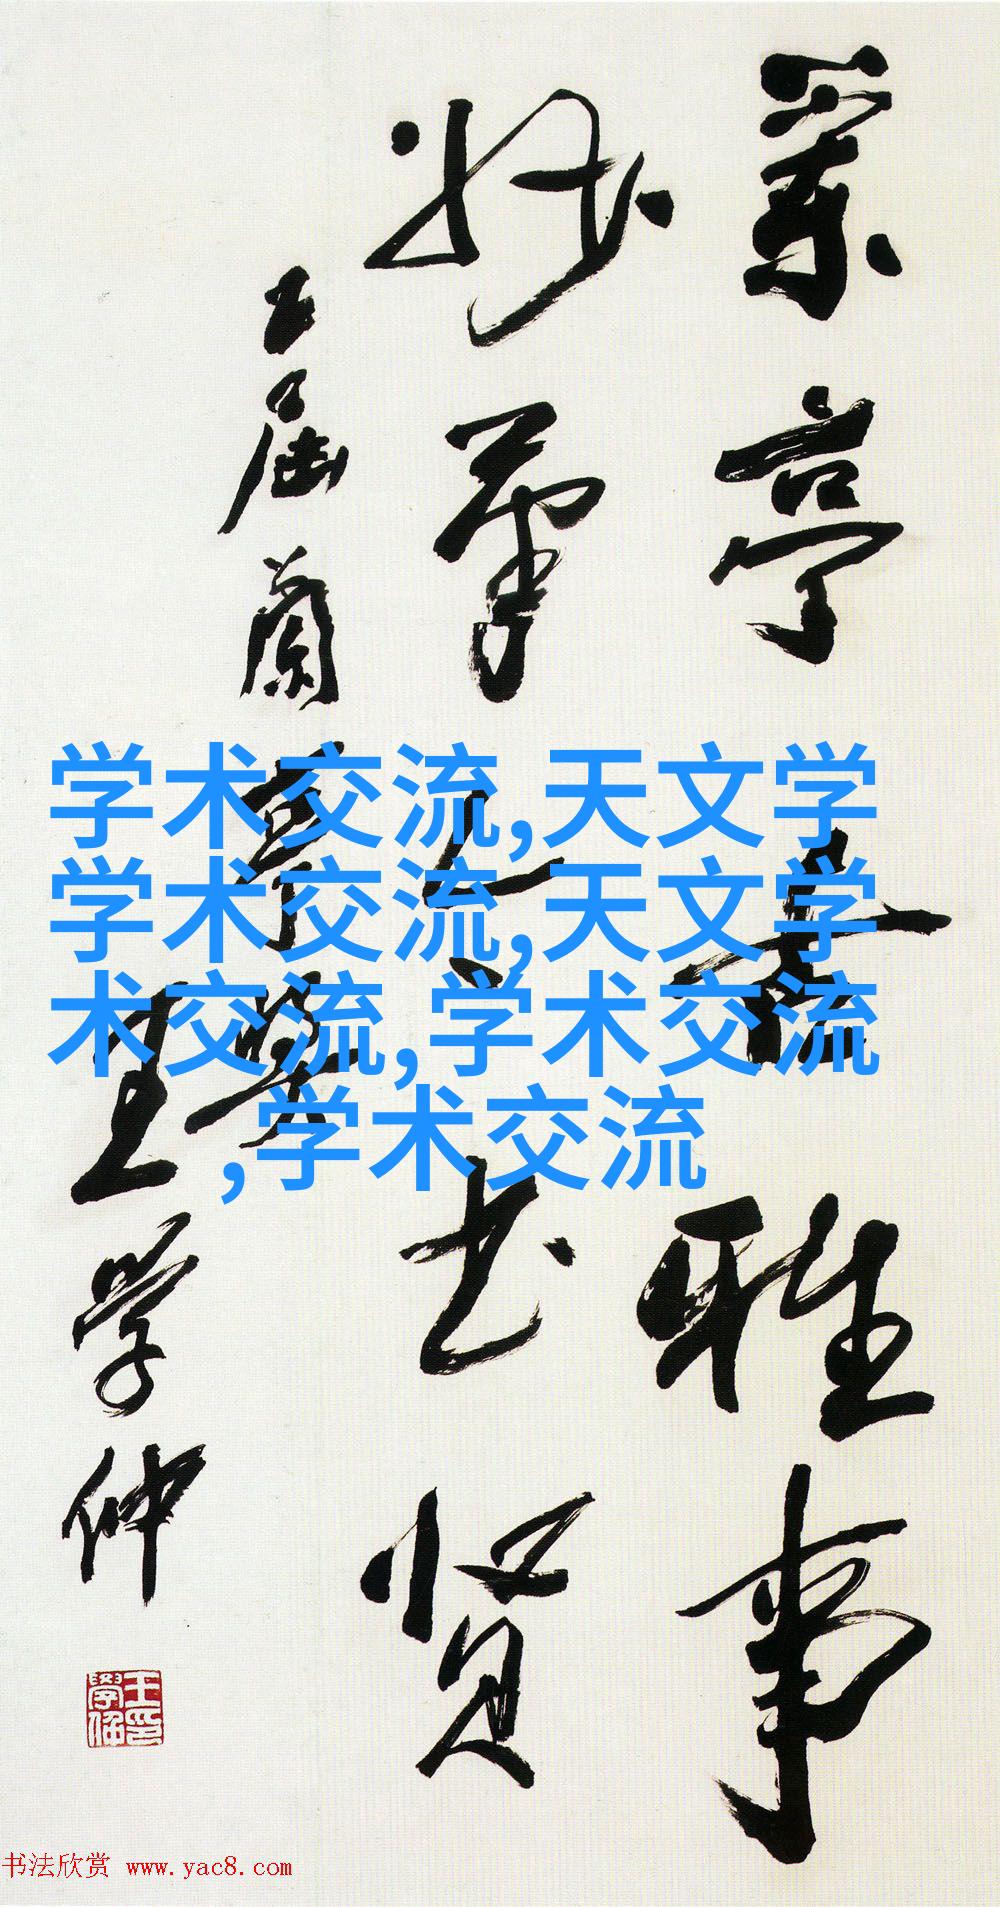 学术交流,天文学
学术交流,天文学
术交流,学术交流
,学术交流
蘭亭 雅事
书贤
届蘭亭奖
王学仲
王學仲印
书法欣赏 www.yac8.com